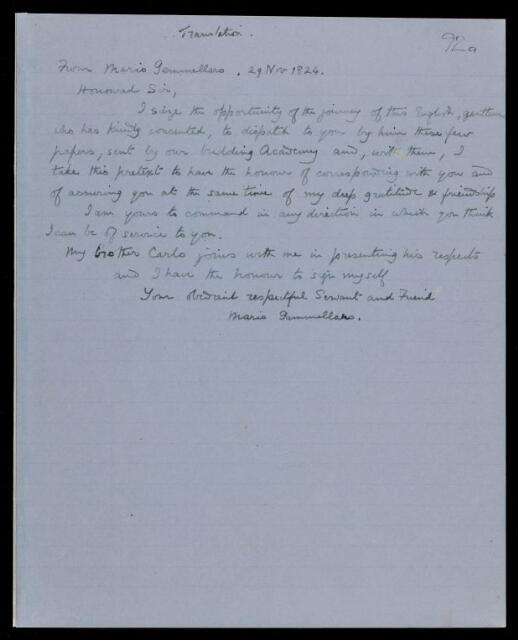 Translation.
92a
From Mario Gemmellaro. 29 Nov 1824.
Honoured Sir,
I seize the opportunity of the journey of this English, gentleman
who has kindly consented, to dispatch to you by him these few
papers, sent by our budding Academy and, with them, I
take this pretext to have the honour of corresponding with you and
of assuring you at the same time of my deep gratitude & friendship
I am yours to command in any direction in which you think
I can be of service to you.
My brother Carlo joins with me in presenting his respects
and I have the honour to sign myself
Your obedient respectful Servant and Friend
Mario Gemmellaro.